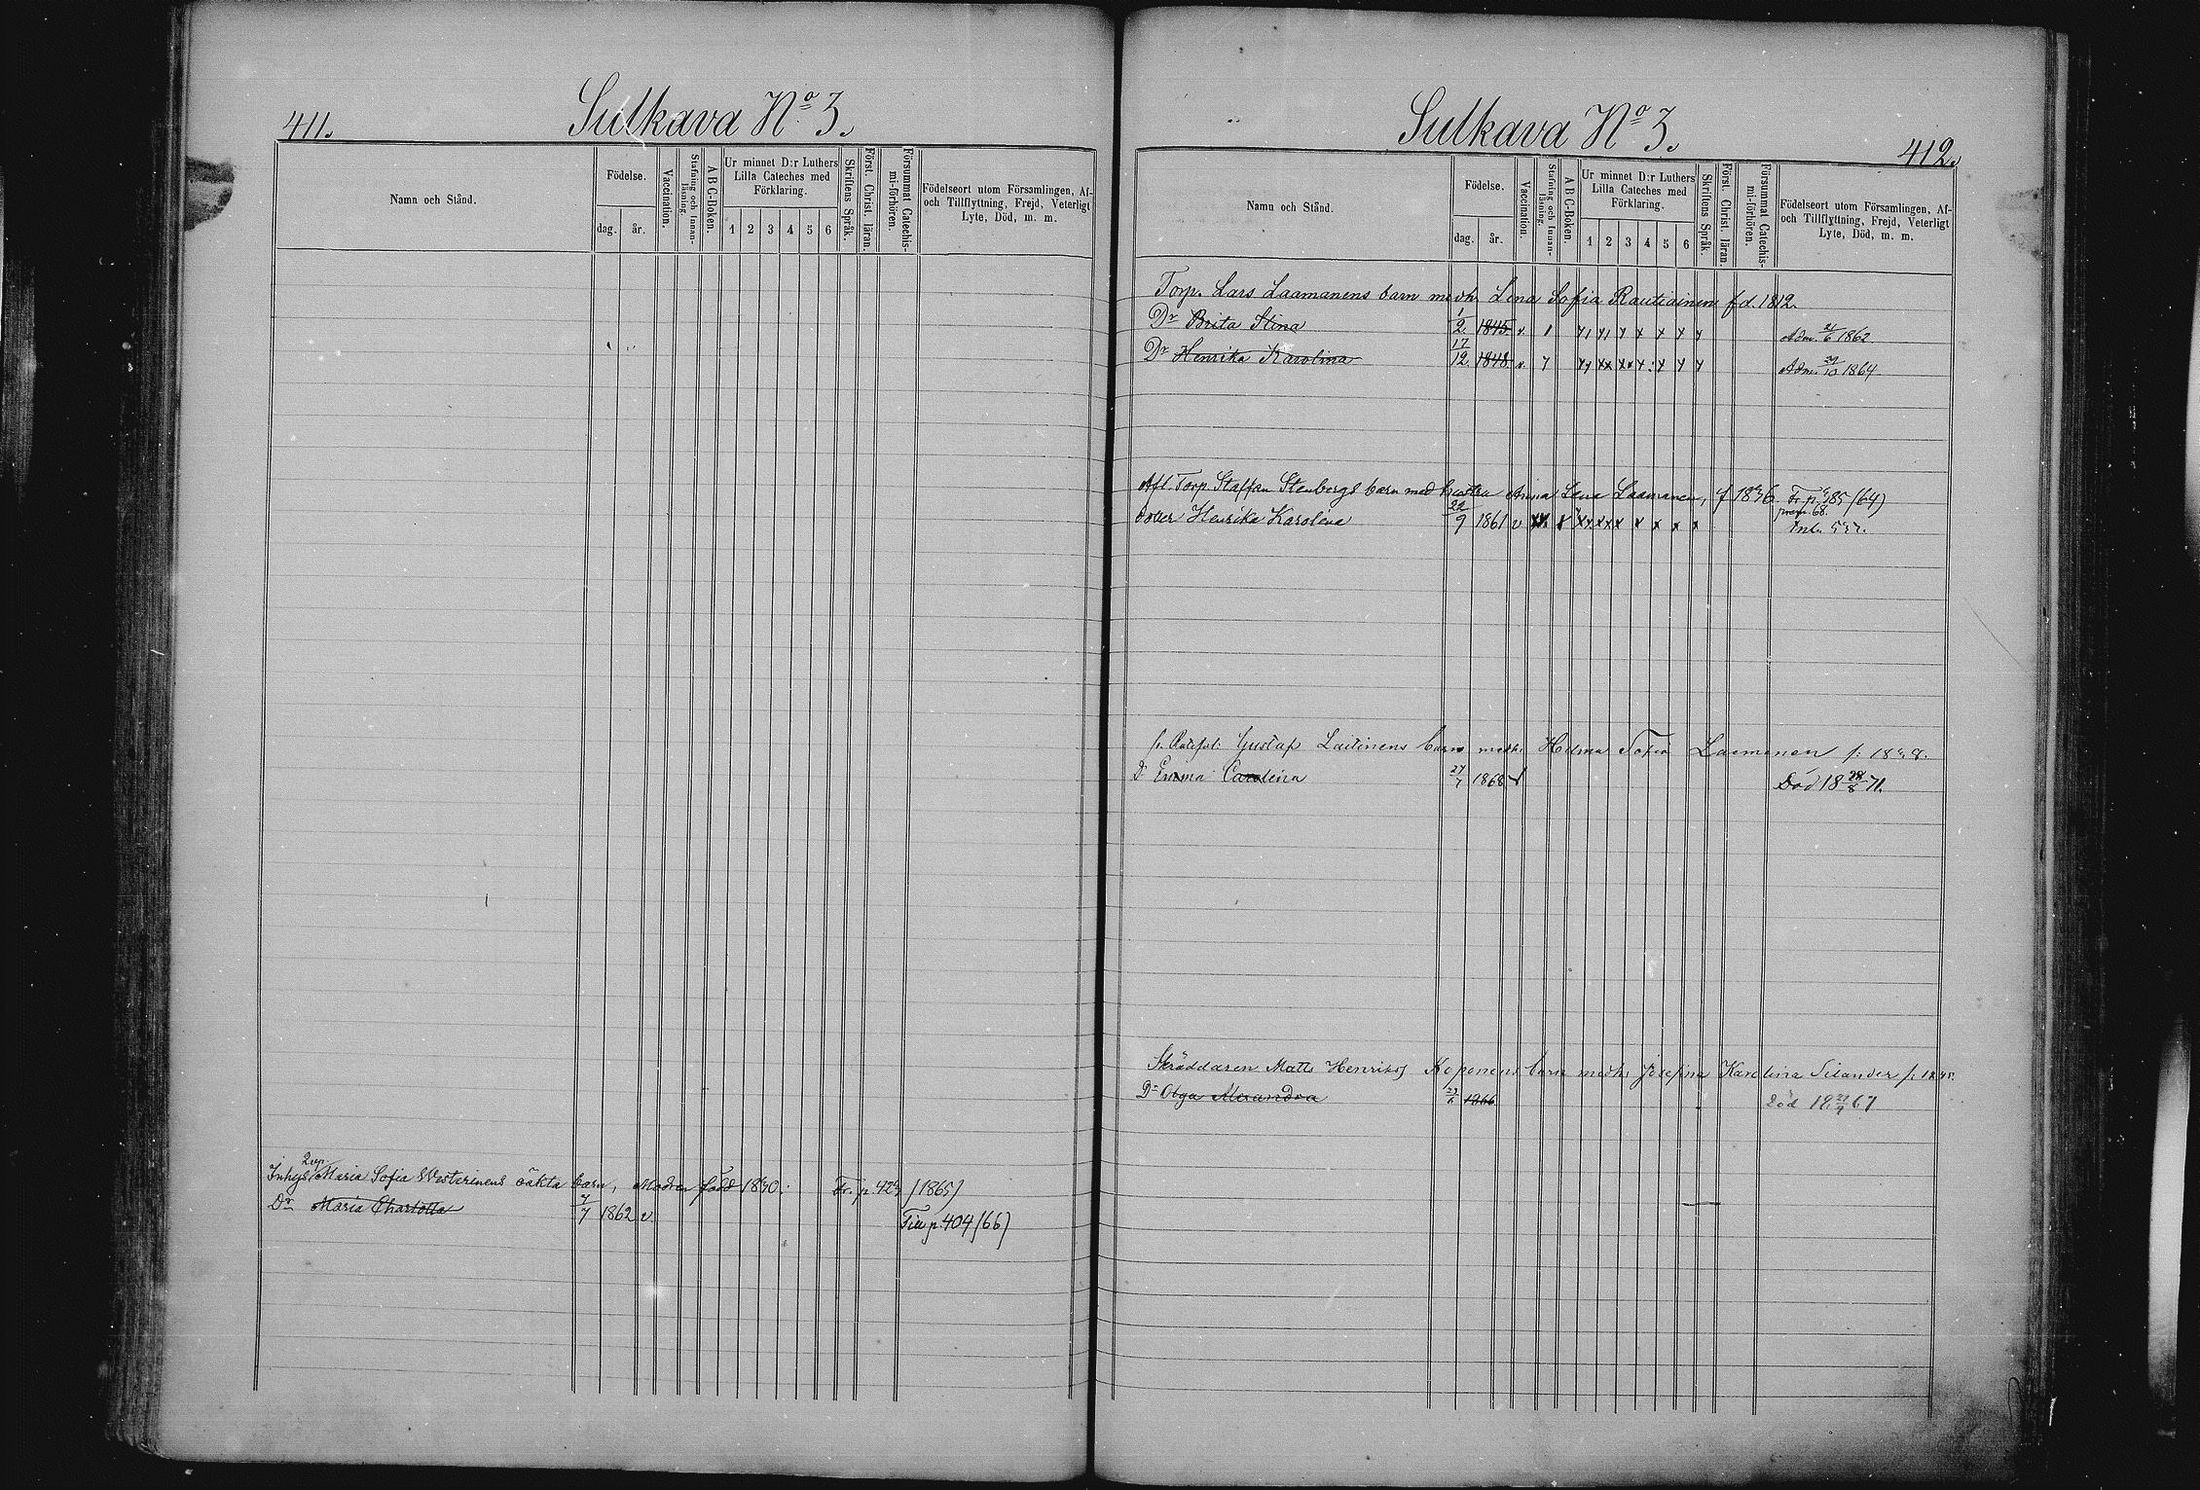 411.
Sulkava No 3.
Namn och Stånd.
Födelse.
dag.
år.
Vaccination.
Stafning och Innan-
läsning.
A B C-Boken.
Ur minnet D:r Luthers
Lilla Cateches med
Förklaring.
1 2 3 4 5 6
Skriftens Språk.
Först. Christ. läran.
Försummat Catechis-
mi-förhören.
Födelseort utom Församlingen, Af-
och Tillflyttning, Frejd, Veterligt
Lyte, Död, m. m.
Inhys. Maria Sofia Westerinens oäkta barn, Modren född 1840. Fr. p. 424 (1865)
Dr Maria Charlotta 4/7 1862 v. Till p. 404 (66)
Sulkava No 3.
412.
Namn och Stånd.
Födelse.
dag.
år.
Vaccination.
Stafning och Innan-
läsning.
A B C-Boken.
Ur minnet D:r Luthers
Lilla Cateches med
Förklaring.
1 2 3 4 5 6
Skriftens Språk.
Först. Christ. läran.
Försummat Catechis-
mi-förhören.
Födelseort utom Församlingen, Af-
och Tillflyttning, Frejd, Veterligt
Lyte, Död, m. m.
Torp. Lars Laamanens barn m. h. Lena Sofia Rautiainen f.d. 1812.
Dr Brita Stina 1/2 1845 v. Adm. 21/6 1862
Dr Henrika Karolina 17/12 1848 v. Adm. 29/10 1864
Afl. Torp. Staffan Stenbergs barn med hustru Anna Lena Laamanen, f 1836 Fr. p. 485 (64)
dotter Henrika Karolina 22/9 1861 v
Gustaf Laitinens barn m. h. Helena Sofia Laamanen f. 1838.
D Emma Carolina 27/7 1868 Död 18 28/8 71.
Skräddaren Matts Henrikss Koponens barn m. h. Josefina Karolina Silander f. 1845.
Dr Olga Alexandra 1866 Död 67